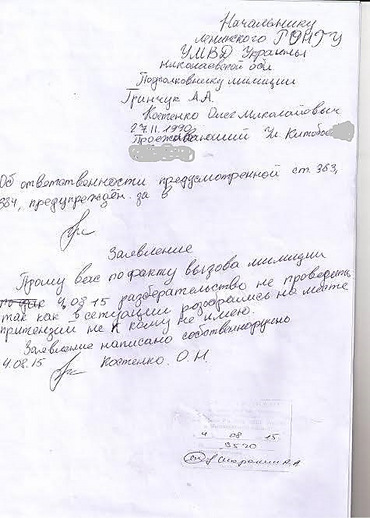 Начальнику
Ленинского РОНГУ
УМВД Украины
Николаевской обл
Подполковнику милиции
Гринчук А.А.
Костенко Олег Миколайович
27.11.1990
Проживающий
Об ответственности предусмотренной ст. 383,
384, предупрежден. за в
Заявление
Прошу вас по факту вызова милиции
4.08 15 разберательство не проверить
так как в сетуации розобрались на месте
притензии не к кому не имею.
Заявление написано собственноручно
4.08.15 Костенко. О.Н.
4 08 15
9570